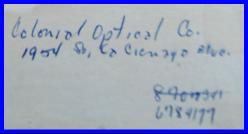 Colonial Optical Co.
1954 So, La Cienaga Blvd.
6784177